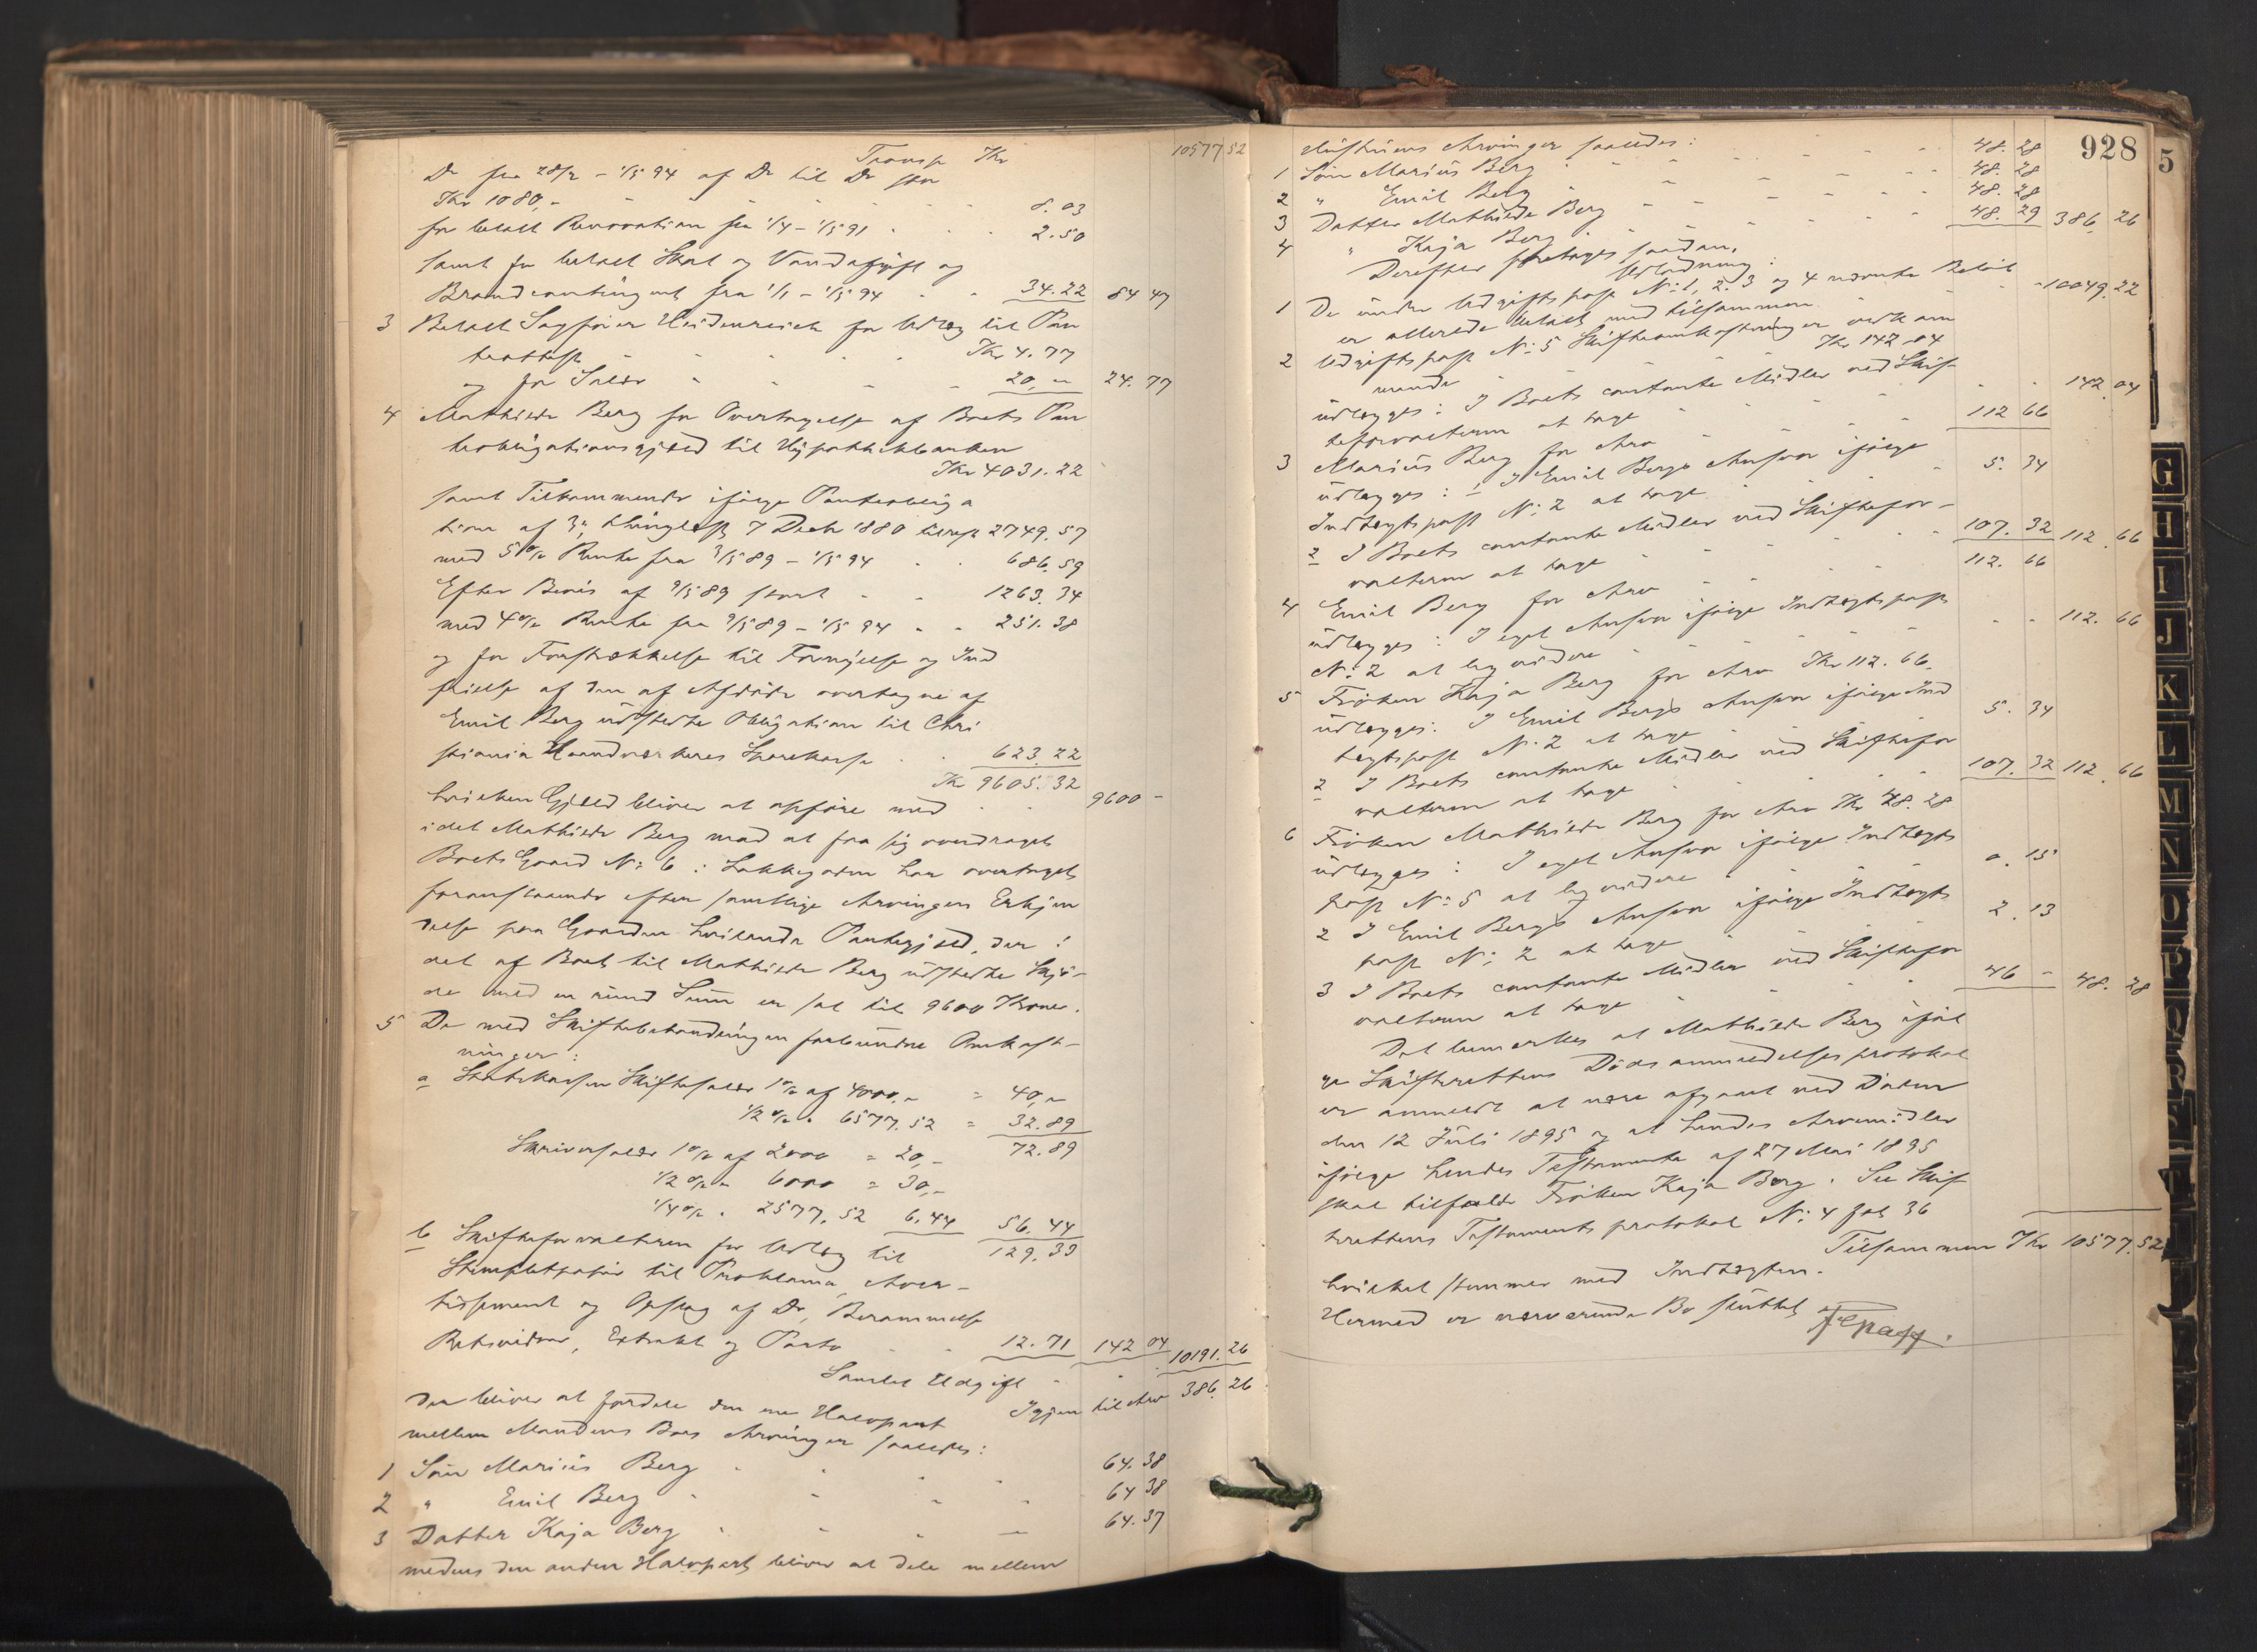 Transp Kr 10577 52
Do fra 28/2 - 1/5 94 af Do til Do stor
Kr 1080,- 8.03
for betalt Renovation fra 1/4 - 1/5 91 2.50
samt for betalt Skat og Vandafgift og
Brandcontingent fra 1/1 - 1/5 94 34.22 84 47
3 Betalt Sagfører Heidenreich for Udlæg til Pan
teattest Kr 4.77
og for Salær 20,- 24.77
4 Mathilde Berg for Overtagelse af Boets Pan
teobligationsgjæld til Hypothekbanken
Kr 4031.22
samt Tilkommende ifølge Panteobliga
tion af 3, thinglæst 7 Decb 1880 2749.57
med 5% Rente fra 9/5 89 - 1/5 94 686.59
Efter Bevis af 9/5 89 stort 1263.34
med 4% Rente fra 9/5 89 - 1/5 94 251.38
og for Forstrækkelse til Fornyelse og Ind
frielse af den af Afdøde overtagne af
Emil Berg udstedte Obligation til Chri
stiania Haandværkeres Sparekasse 623.22
Kr 9605.32
hvilken Gjæld bliver at opføre med 9600 -
idet Mathilde Berg mod at faa sig overdraget
Boets Gaard No 6 i Løkkegaden har overtaget
foranstaaende efter samtlige Arvingers Erkjen
delse paa Gaarden hvilende Pantegjæld, der i
det af Boet til Mathilde Berg udstedte Skjø-
de med en rund Sum er sat til 9600 Kroner.
5 De med Skiftebehandlingen forbundne Omkost-
ninger:
a Statskassen Skiftesalær 1% af 4000,- = 40,-
1/2 % " 6577.52 = 32.89
72.89
Skriversalær 1% af 2000 = 20,-
1/2 % " 6000 = 30,-
1/4 % " 2577.52 6.44 56.44
129.33
b Skifteforvalteren for Udlæg til
Stempletpapir til Proklama, Aver-
tissement og Opslag af Do, Berammelse
Retsvidner, Extrakt og Porto 12.71 142 04 10191.26
Samlet Udgift
Igjen til Arv 386.26
der bliver at fordele den ene Halvpart
mellem Mandens Boes Arvinger saaledes:
1 Søn Marius Berg 64.38
2 " Emil Berg 64 38
3 Datter Kaja Berg 64.37
medens den anden Halvpart bliver at dele mellem
928
5
Hustruens Arvinger saaledes:
1 Søn Marius Berg 48.28
2 " Emil Berg 48.28
3 Datter Mathilde Berg 48.28
4 " Kaja Berg 48.29 386.26
Derefter foretages saadan
Udlodning:
1 De under Udgiftspost No 1, 2, 3 og 4 nævnte Beløb
er allerede betalt med tilsammen 10049.22
2 Udgiftspost No 5 Skifteomkostninger vedkom
mende Kr 142.04
udlægges: I Boets contante Midler ved Skif-
teforvalteren at tage 142.04
3 Marius Berg for Arv 112 66
udlægges: 1 I Emil Bergs Ansvar ifølge
Indtægtspost No 2 at tage 5.34
2 I Boets contante Midler ved Skiftefor-
valteren at tage 107.32 112.66
4 Emil Berg for Arv 112.66
udlægges: I eget Ansvar ifølge Indtægtspost
No 2 at liqvidere 112.66
5 Frøken Kaja Berg for Arv Kr 112.66.
udlægges: I Emil Bergs Ansvar ifølge Ind
tægtspost No 2 at tage 5.34
2 I Boets contante Midler ved Skiftefor
valteren at tage 107.32 112.66
6 Frøken Mathilde Berg for Arv Kr 48.28
udlægges: I eget Ansvar ifølge Indtægts
post No 5 at liqvidere 0.15
2 I Emil Bergs Ansvar ifølge Indtægts
post No 2 at tage 2.13
3 I Boets contante Midler ved Skiftefor
valteren at tage 46 - 48.28
Det bemærkes at Mathilde Berg iføl
ge Skifterettens Dødsanmeldelsesprotokol
er anmeldt at være afgaaet ved Døden
den 12 Juli 1895 og at hendes Arvemidler
ifølge hendes Testamente af 27 Mai 1895
skal tilfalde Frøken Kaja Berg. Se Skif
terettens Testamentsprotokol No 4 fol 36
Tilsammen Kr 10577.52
hvilket stemmer med Indtægten.
Hermed er nærværende Bo sluttet
G
H
I
J
K
L
M
N
O
P
Q
R
S
T